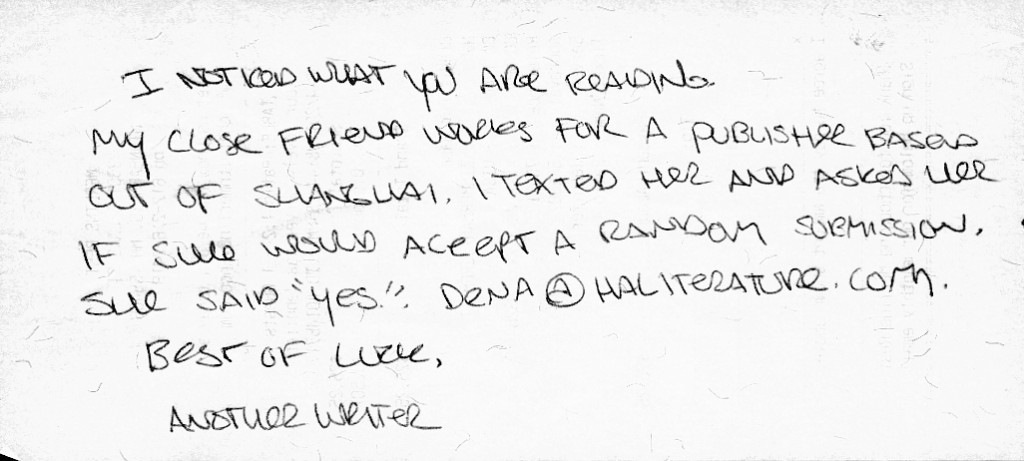 I NOTICED WHAT YOU ARE READING.
MY CLOSE FRIEND WORKS FOR A PUBLISHER BASED
OUT OF SHANGHAI. I TEXTED HER AND ASKED HER
IF SHE WOULD ACCEPT A RANDOM SUBMISSION.
SHE SAID "YES!". DENA@HALITERATURE.COM.
BEST OF LUCK,
ANOTHER WRITER